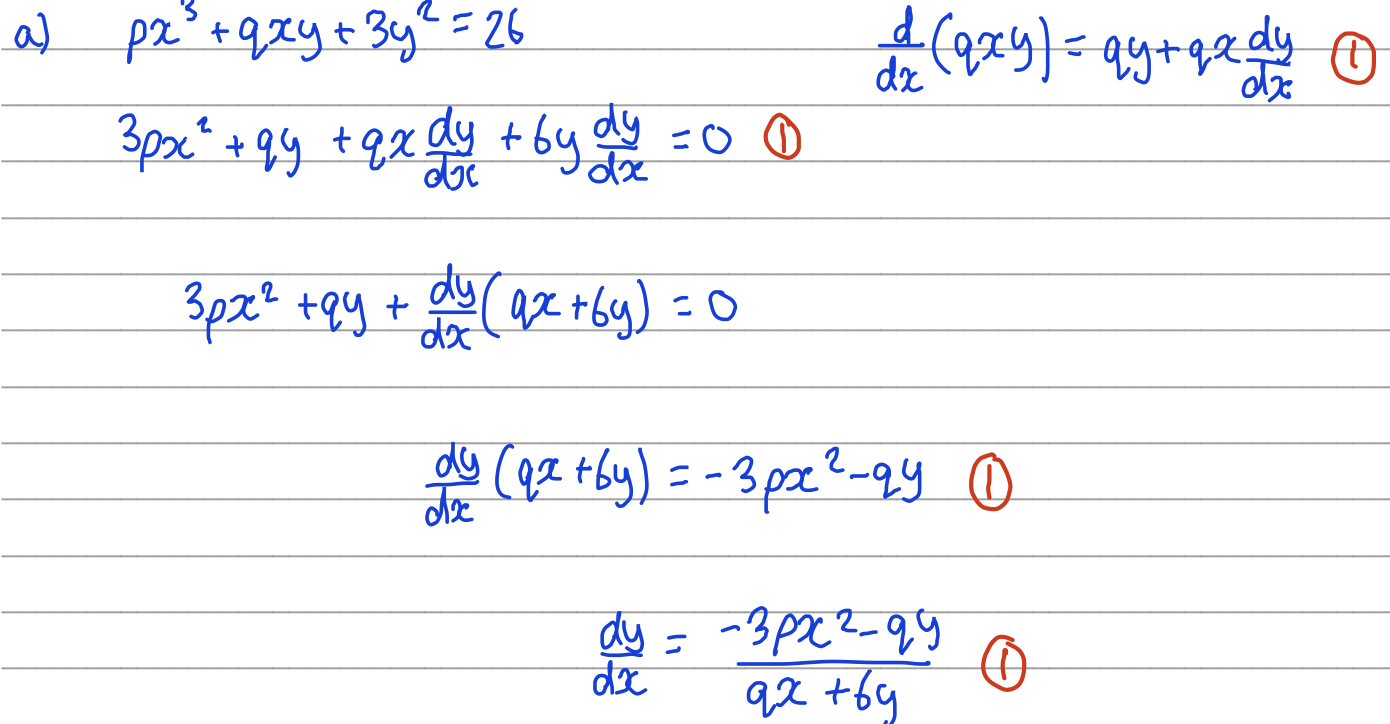 a) px³ + qxy + 3y² = 26
d/dx (qxy) = qy + qx dy/dx ①
3px² + qy + qx dy/dx + 6y dy/dx = 0 ①
3px² + qy + dy/dx (qx + 6y) = 0
dy/dx (qx + 6y) = -3px² - qy ①
dy/dx = (-3px² - qy)/(qx + 6y) ①